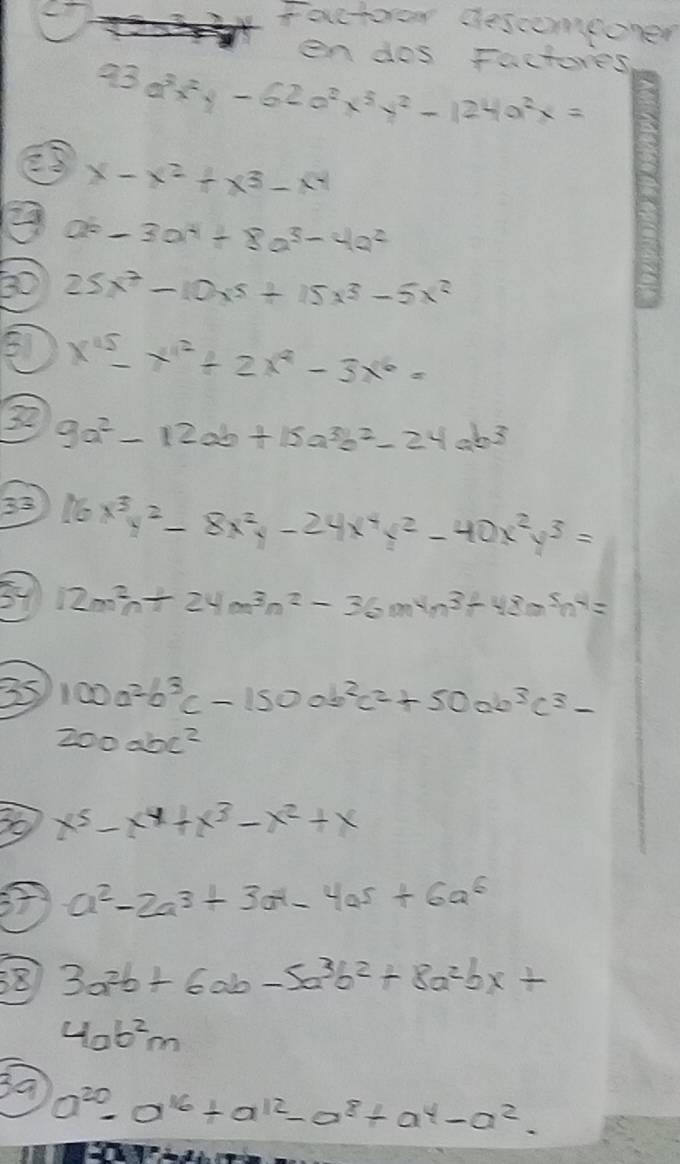 Factorar descomponer
en dos Factores
93a³x²y - 62a²x³y² - 124a²x =
28 x - x² + x³ - x⁴
29 a⁶ - 3a⁴ + 8a³ - 4a²
30 25x⁷ - 10x⁵ + 15x³ - 5x²
31 x¹⁵ - x¹² + 2x⁹ - 3x⁶ =
32 9a² - 12ab + 15a³b² - 24ab³
33 16x³y² - 8x²y - 24x⁴y² - 40x²y³ =
34 12m²n + 24m³n² - 36m⁴n³ + 48m⁵n⁴ =
35 100a²b³c - 150ab²c² + 50ab³c³ -
200abc²
36 x⁵ - x⁴ + x³ - x² + x
37 a² - 2a³ + 3a⁴ - 4a⁵ + 6a⁶
38 3a²b + 6ab - 5a³b² + 8a²bx +
4ab²m
39 a²⁰ - a¹⁶ + a¹² - a⁸ + a⁴ - a².